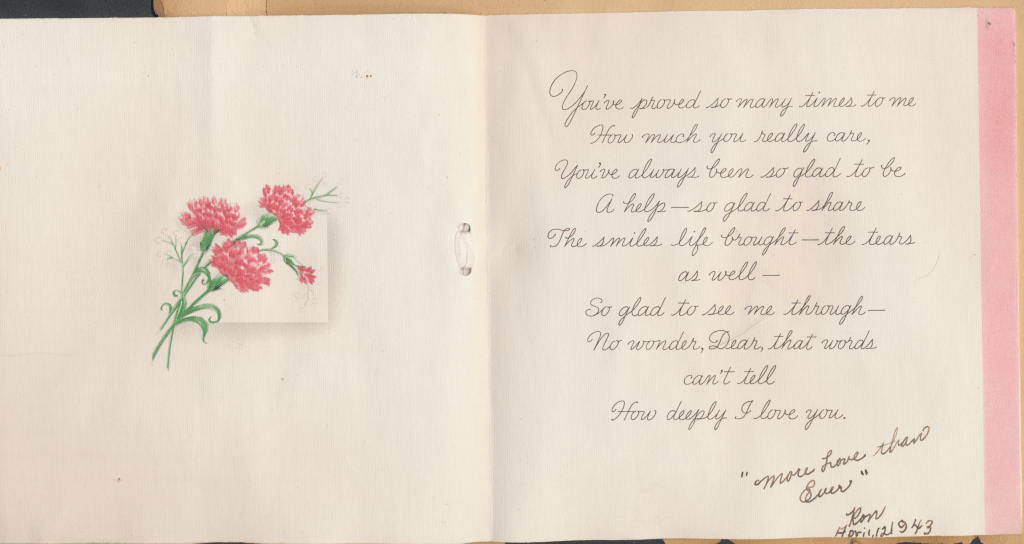 You've proved so many times to me
How much you really care,
You've always been so glad to be
A help—so glad to share
The smiles life brought—the tears
as well—
So glad to see me through—
No wonder, Dear, that words
can't tell
How deeply I love you.
"more Love than
Ever"
Ron
April, 12, 1943